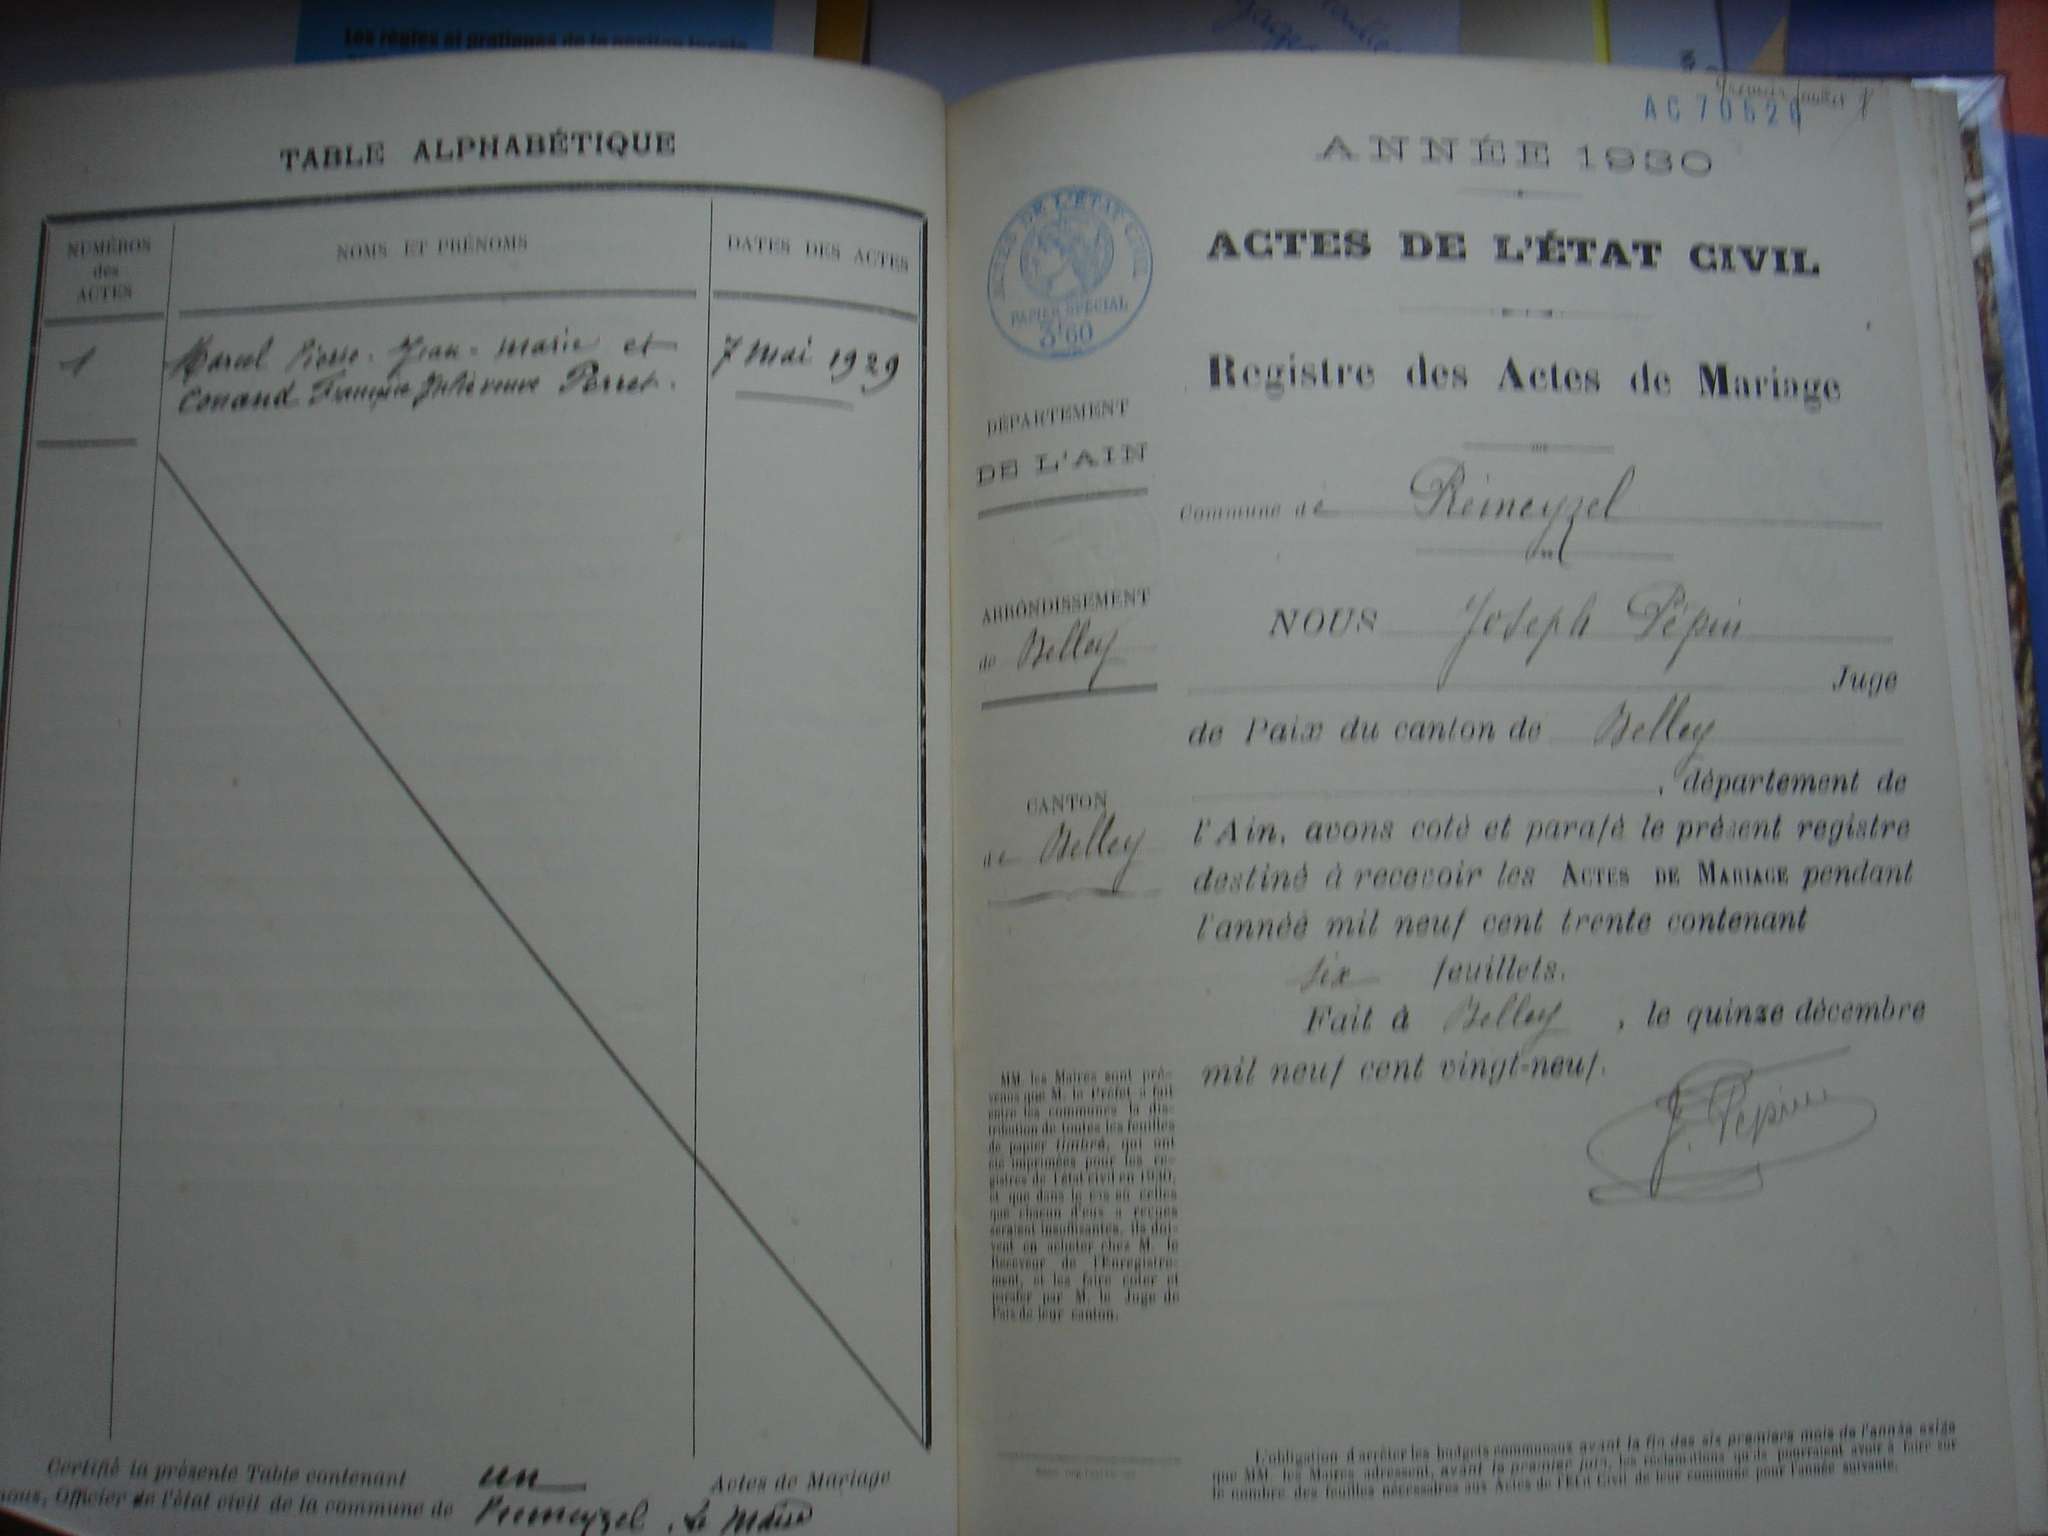 Les règles et pratiques de la gestion locale
TABLE ALPHABÉTIQUE
NUMÉROS
des
ACTES
NOMS ET PRÉNOMS
DATES DES ACTES
1
Marcel Pierre-Jean-Marie et
Conand Françoise Julie veuve Perret.
7 Mai 1929
Certifié la présente Table contenant un Actes de Mariage
nous, Officier de l'état civil de la commune de Prémeyzel, Le Maire
Premier feuillet
AC 7052
ANNÉE 1930
ACTES DE L'ÉTAT CIVIL
Registre des Actes de Mariage
ACTES DE L'ÉTAT CIVIL
PAPIER SPÉCIAL
3f60
DÉPARTEMENT
DE L'AIN
ARRONDISSEMENT
de Belley
CANTON
de Belley
Commune de Prémeyzel
NOUS Joseph Pépin
Juge
de Paix du canton de Belley
, département de
l'Ain, avons coté et parafé le présent registre
destiné à recevoir les ACTES DE MARIAGE pendant
l'année mil neuf cent trente contenant
six feuillets.
Fait à Belley, le quinze décembre
mil neuf cent vingt-neuf.
J. Pépin
MM. les Maires sont pré-
venus que M. le Préfet a fait
entre les communes la dis-
tribution de toutes les feuilles
de papier timbré, qui ont
été imprimées pour les re-
gistres de l'état civil en 1930,
et que dans le cas où celles
que chacun d'eux a reçues
seraient insuffisantes, ils doi-
vent en acheter chez M. le
Receveur de l'Enregistre-
ment, et les faire coter et
parafer par M. le Juge de
Paix de leur canton.
L'obligation d'arrêter les budgets communaux avant la fin des six premiers mois de l'année exige
que MM. les Maires adressent, avant le premier juin, les réclamations qu'ils pourraient avoir à faire sur
le nombre des feuilles nécessaires aux Actes de l'État Civil de leur commune pour l'année suivante.